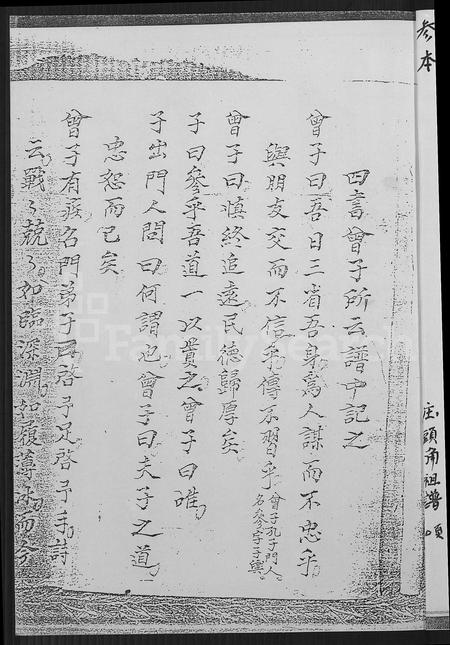 参本
庄頭角祖譜
四書曾子所云譜中記之
曾子曰吾日三省吾身爲人謀而不忠乎
與朋友交而不信乎傳不習乎曾子孔子門人名參字子輿
曾子曰慎終追遠民德歸厚矣
子曰參乎吾道一以貫之曾子曰唯
子出門人問曰何謂也曾子曰夫子之道
忠恕而已矣
曾子有疾召門弟子曰啓予足啓予手詩
云戰々兢々如臨深淵如履薄冰而今
FamilySearch